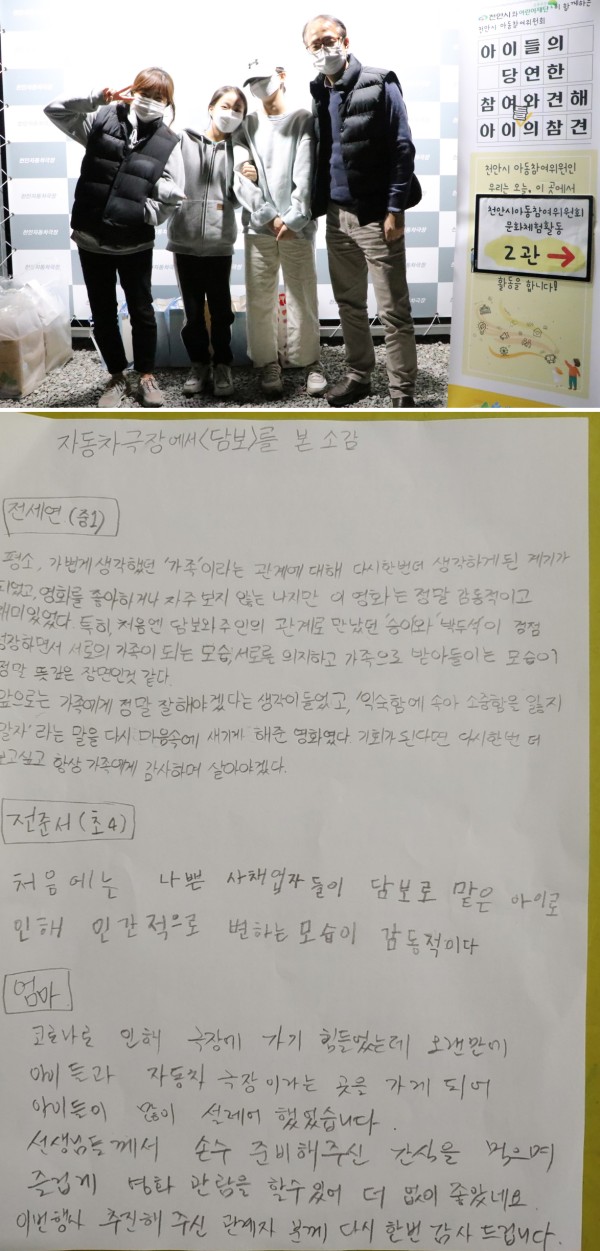 천안시와 어린이재단이 함께하는
천안시 아동참여위원회
아이들의
당연한
참여와견해
아이의참견
천안시 아동참여위원인
우리는 오늘, 이 곳에서
천안시아동참여위원회
문화체험활동
2관 →
활동을 합니다!!
자동차극장에서 <담보>를 본 소감
전세연 (중1)
평소, 가볍게 생각했던 '가족'이라는 관계에 대해 다시한번더 생각하게 된 계기가
되었고, 영화를 좋아하거나 자주 보지 않는 나지만 이 영화는 정말 감동적이고
재미있었다. 특히, 처음엔 담보와 주인의 관계로 만났던 '승이'와 '박두석'이 점점
성장하면서 서로의 가족이 되는 모습, 서로를 의지하고 가족으로 받아들이는 모습이
정말 뜻깊은 장면인것 같다.
앞으로는 가족에게 정말 잘해야겠다는 생각이 들었고, '익숙함에 속아 소중함을 잃지
말자' 라는 말을 다시 마음속에 새기게 해준 영화였다. 기회가 된다면 다시한번 더
보고싶고 항상 가족에게 감사하며 살아야겠다.
전준서 (초4)
처음에는 나쁜 사채업자들이 담보로 맡은 아이로
인해 인간적으로 변하는 모습이 감동적이다
엄마
코로나로 인해 극장에 가기 힘들었는데 오랜만에
아이들과 자동차 극장이라는 곳을 가게 되어
아이들이 많이 설레어 했었습니다.
선생님들께서 손수 준비해주신 간식을 먹으며
즐겁게 영화 관람을 할수 있어 더 없이 좋았네요.
이번행사 추진해 주신 관계자 분께 다시 한번 감사 드립니다.